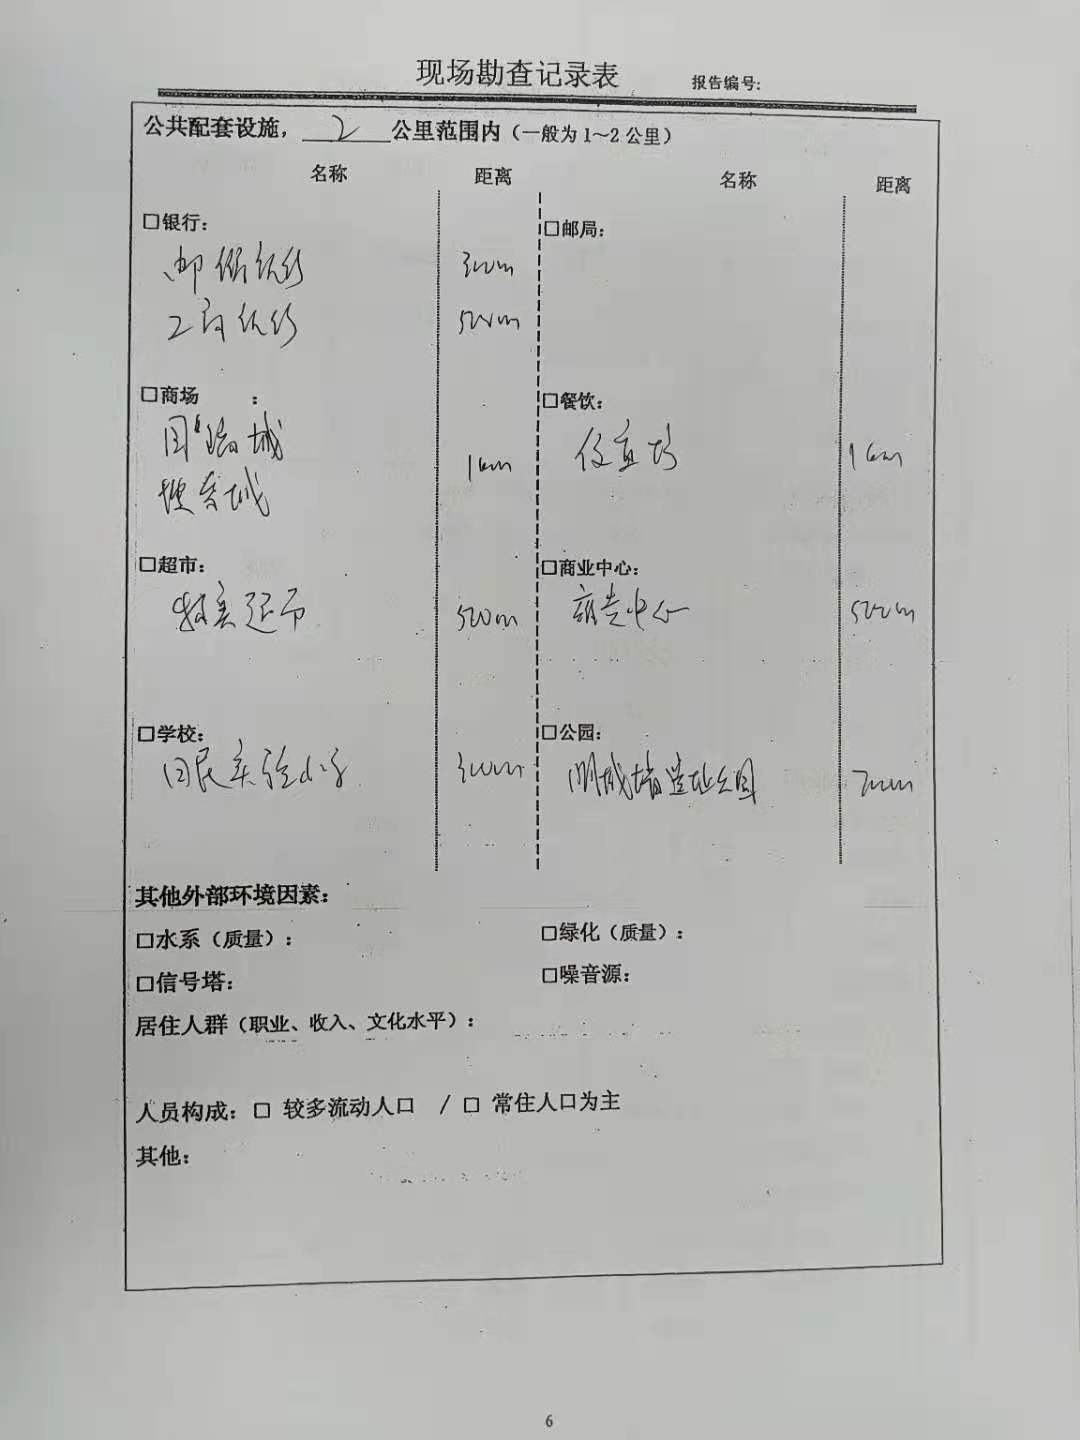 现场勘查记录表
报告编号:
公共配套设施， 2 公里范围内（一般为1～2公里）
名称 距离 名称 距离
□银行： □邮局：
邮储银行 300m
工商银行 500m
□商场 ： □餐饮：
国瑞城 1km 便宜坊 1km
搜秀城
□超市： □商业中心：
物美超市 500m 中心 500m
□学校： □公园：
回民实验小学 300m 明城墙遗址公园 700m
其他外部环境因素：
□水系（质量）： □绿化（质量）：
□信号塔： □噪音源：
居住人群（职业、收入、文化水平）：
人员构成：□ 较多流动人口 / □ 常住人口为主
其他：
6